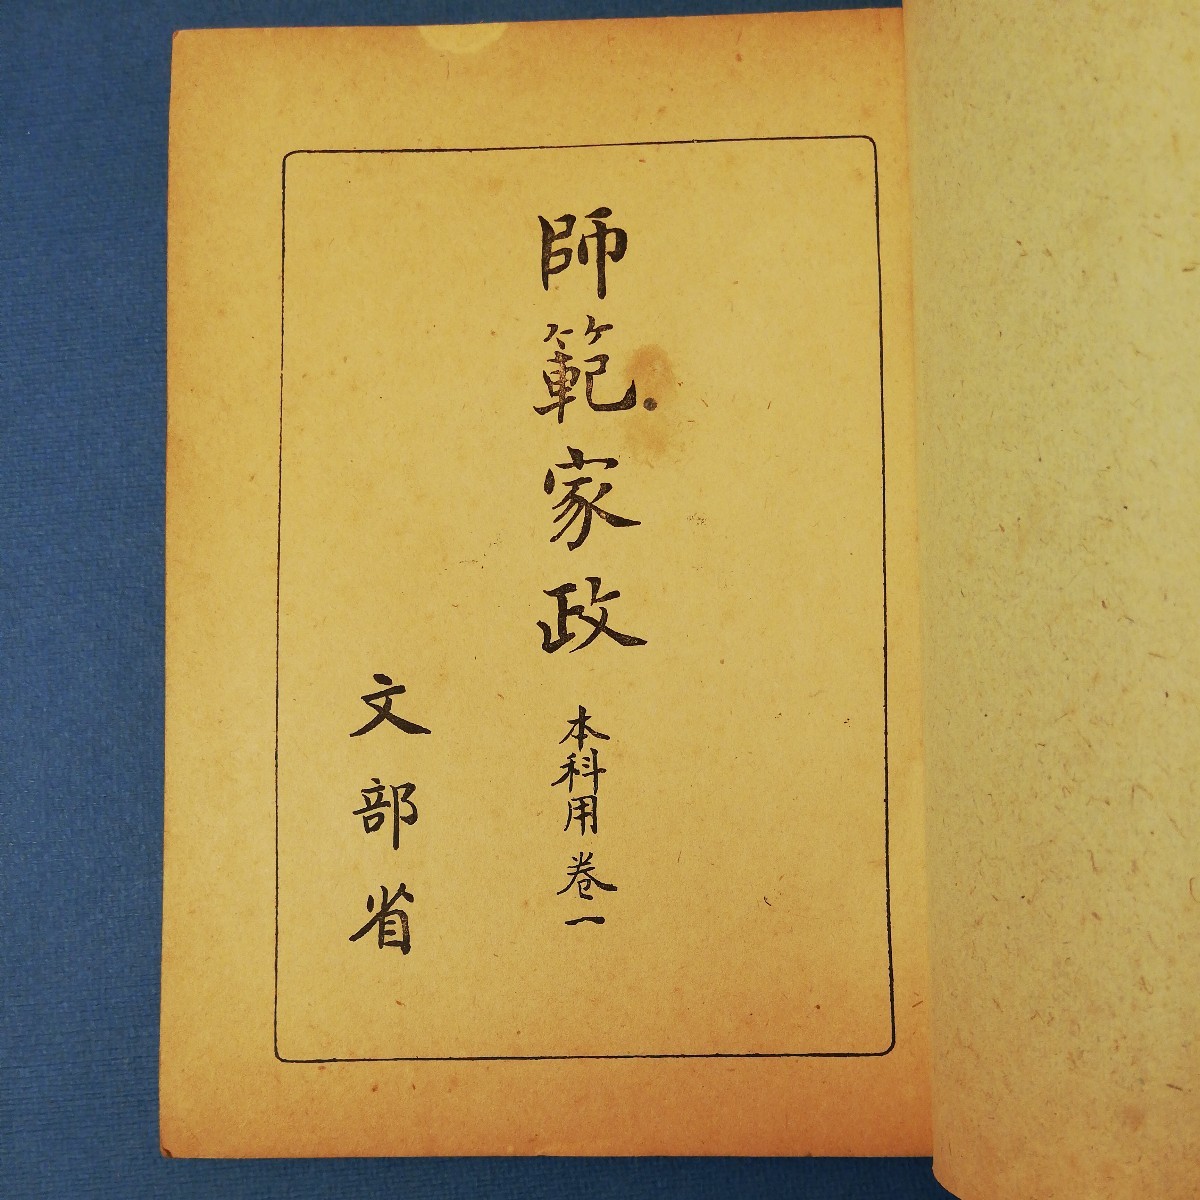 師範家政 本科用 巻一
文部省